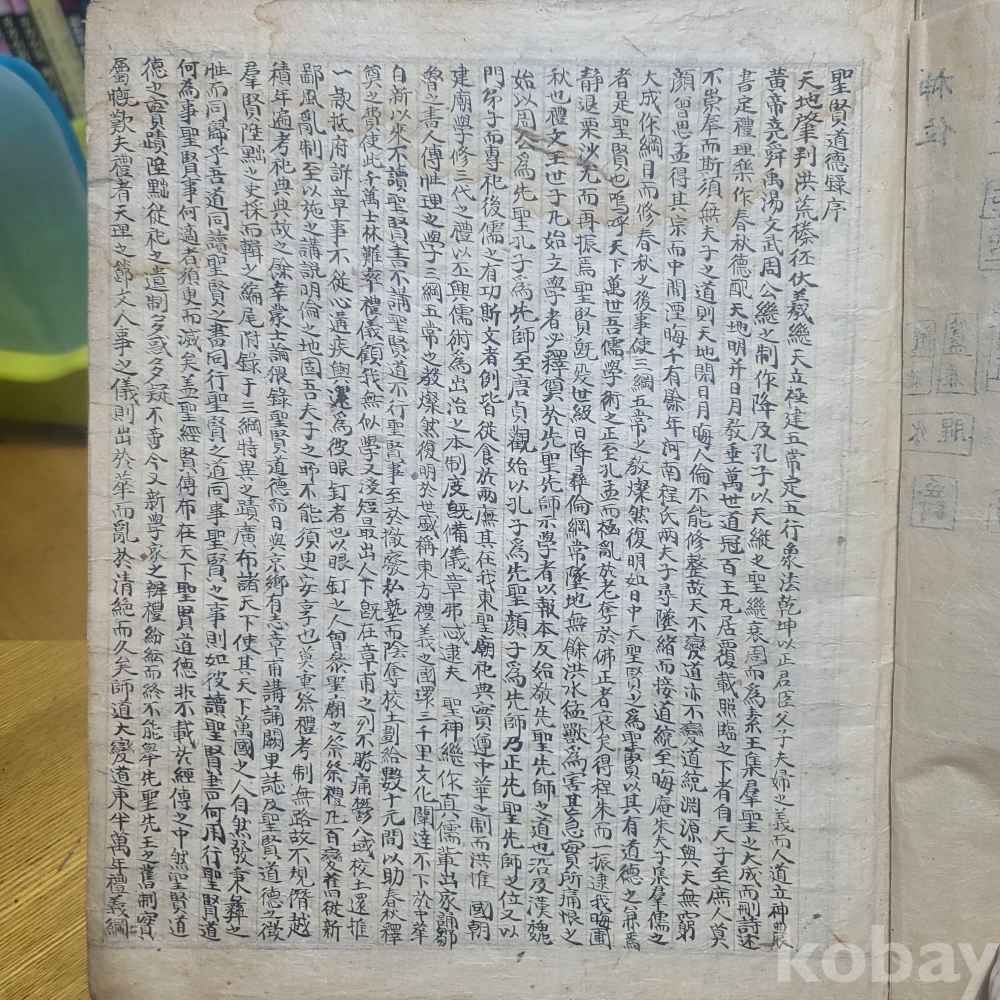 聖賢道德錄序
天地肇判洪荒榛狉伏羲繼天立極建五常定五行象法乾坤以正君臣父子夫婦之義而人道立神農
黃帝堯舜禹湯文武周公繼之制作降及孔子以天縱之聖繼衰周而爲素王集羣聖之大成而刪詩述
書定禮理樂作春秋德配天地明并日月敎垂萬世道冠百王凡居覆載照臨之下者自天子至庶人莫
不崇奉而斯須無夫子之道則天地閉日月晦人倫不能修整故天不變道亦不變道統淵源與天無窮
顔曾思孟得其宗而中間湮晦千有餘年河南程氏兩夫子尋墜緖而接道統至晦庵朱夫子集羣儒之
大成作綱目而修春秋之後事使三綱五常之敎燦然復明如日中天聖賢之爲聖賢以其有道德之
者是聖賢也嗚呼天下萬世吾儒學術之正至孔孟而極亂於老奪於佛正者衰矣得程朱而一振逮我晦圃
靜退栗沙尤而再振焉聖賢旣歿世級日降彛倫綱常墜地無餘洪水猛獸爲害甚急實所痛恨之
秋也禮文王世子凡始立學者必釋奠於先聖先師示學者以報本反始敬先聖先師之道也沿及漢魏
始以周公爲先聖孔子爲先師至唐貞觀始以孔子爲先聖顔子爲先師乃正先聖先師之位又以
門弟子而專祀後儒之有功斯文者例皆從食於兩廡其在我東聖廟祀典實遵中華之制而洪惟 國朝
建廟學修三代之禮以丕興儒術爲出治之本制度旣備儀章弗忒逮夫 聖神繼作眞儒輩出家誦鄒
魯之書人傳性理之學三綱五常之敎燦然復明於世盛稱東方禮義之國環三千里文化闡達不下於中華
自新以來不讀聖賢書不講聖賢道不行聖賢事至於撤家私塾而陰奪校土劃給數十元問以助春秋釋
奠之費使此千萬士林難率禮儀顧我無似學又淺短最出人下旣在章甫之列不勝痛鬱入域校土還推
一款抵府訴章事不從心遘疾輿還爲彼眼釘者也以眼釘之人曾參聖廟之祭祭禮凡百變舊從新
鄙風亂制至以施之講說明倫之地固吾夫子之所不能須臾安享也莫重祭禮考制無路故不規僭越
積年遍考祀典典故之餘幸蒙士論猥錄聖賢道德而日與京鄕有志章甫講誦闕里誌及聖賢道德之徵
羣賢陞黜之史採而輯之編尾附錄于三綱特異之蹟廣布諸天下使其天下萬國之人自然發秉彛之
性而同歸乎吾道同讀聖賢之書同行聖賢之道同事聖賢之事則如彼讀聖賢書何用行聖賢道
何爲事聖賢事何適者須臾而滅矣盖聖經賢傳布在天下聖賢道德非不載於經傳之中然聖賢道
德之實蹟陞黜從祀之遺制多惑多疑不啻今又新學家之辨禮紛紜而終不能擧先聖先王之舊制實
屬慨歎夫禮者天理之節文人事之儀則出於華而亂於清絶而久矣師道大變道東半萬年禮義綱
神位